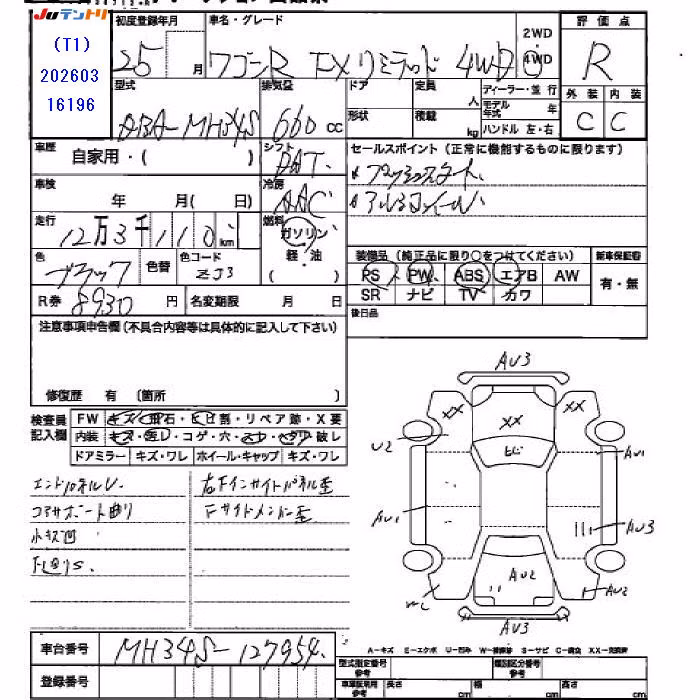 Juテントリ
(T1)
202603
16196
初度登録年月
25 月
車名・グレード
ワゴンR FXリミテッド 4WD
2WD
4WD
評価点
R
型式
ABA-MH34S
排気量
660 cc
ドア
形状
定員
人
積載
kg
ディーラー・並行
モデル年式 年
ハンドル 左・右
外装
C
内装
C
車歴
自家用・( )
シフト
DAT
セールスポイント(正常に機能するものに限ります)
プッシュスタート
アルミホイール
車検
年 月( 日)
冷房
AAC
走行
12万3千110 km
燃料
ガソリン
軽・油
( )
色
ブラック
色替
色コード
ZJ3
装備品(純正品に限り○をつけてください)
新車保証書
PS PW ABS エアB AW
SR ナビ TV カワ
有・無
R券
8930 円
名変期限 月 日
後日品
注意事項申告欄(不具合内容等は具体的に記入して下さい)
修復歴 有 〔箇所 〕
検査員
記入欄
FW キズ・飛石・ヒビ割・リペア跡・X要
内装 キズ・汚レ・コゲ・穴・スレ・ヘタリ・破レ
ドアミラー キズ・ワレ ホイール・キャップ キズ・ワレ
コアサポート曲り
小キズ凹
右Fインサイドパネル歪
Fサイドメンバー歪
AU3
XX
XX
XX
ヒビ
U2
AU1
AU1
AU3
AU2
AU2
AU3
A-キズ E-エクボ U-凹み W-補修跡 S-サビ C-腐食 XX-交換済
車台番号
MH34S-127954
登録番号
型式指定番号
参考
類別区分番号
参考
車検証専用
参考
長さ cm
幅 cm
高さ cm